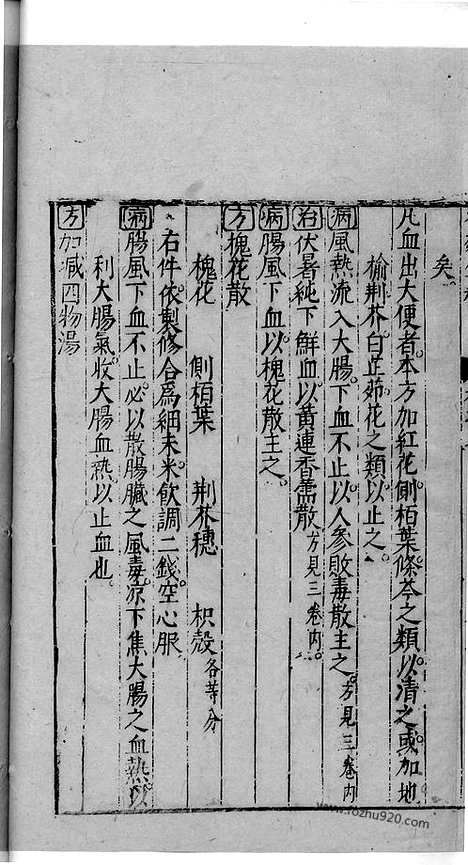 矣
凡血出大便者本方加紅花側栢葉條芩之類以清之或加地
榆荆芥白芷茆花之類以止之
病風熱流入大腸下血不止以人參敗毒散主之方見三卷內
治伏暑純下鮮血以黃連香薷散方見三卷內
病腸風下血以槐花散主之
方槐花散
槐花 側栢葉 荆芥穗 枳殼各等分
右件依製修合爲細末米飲調二錢空心服
病腸風下血不止必以散腸臟之風毒凉下焦大腸之血熱以
利大腸氣收大腸血熱以止血也
方加減四物湯
www.fozhu920.com